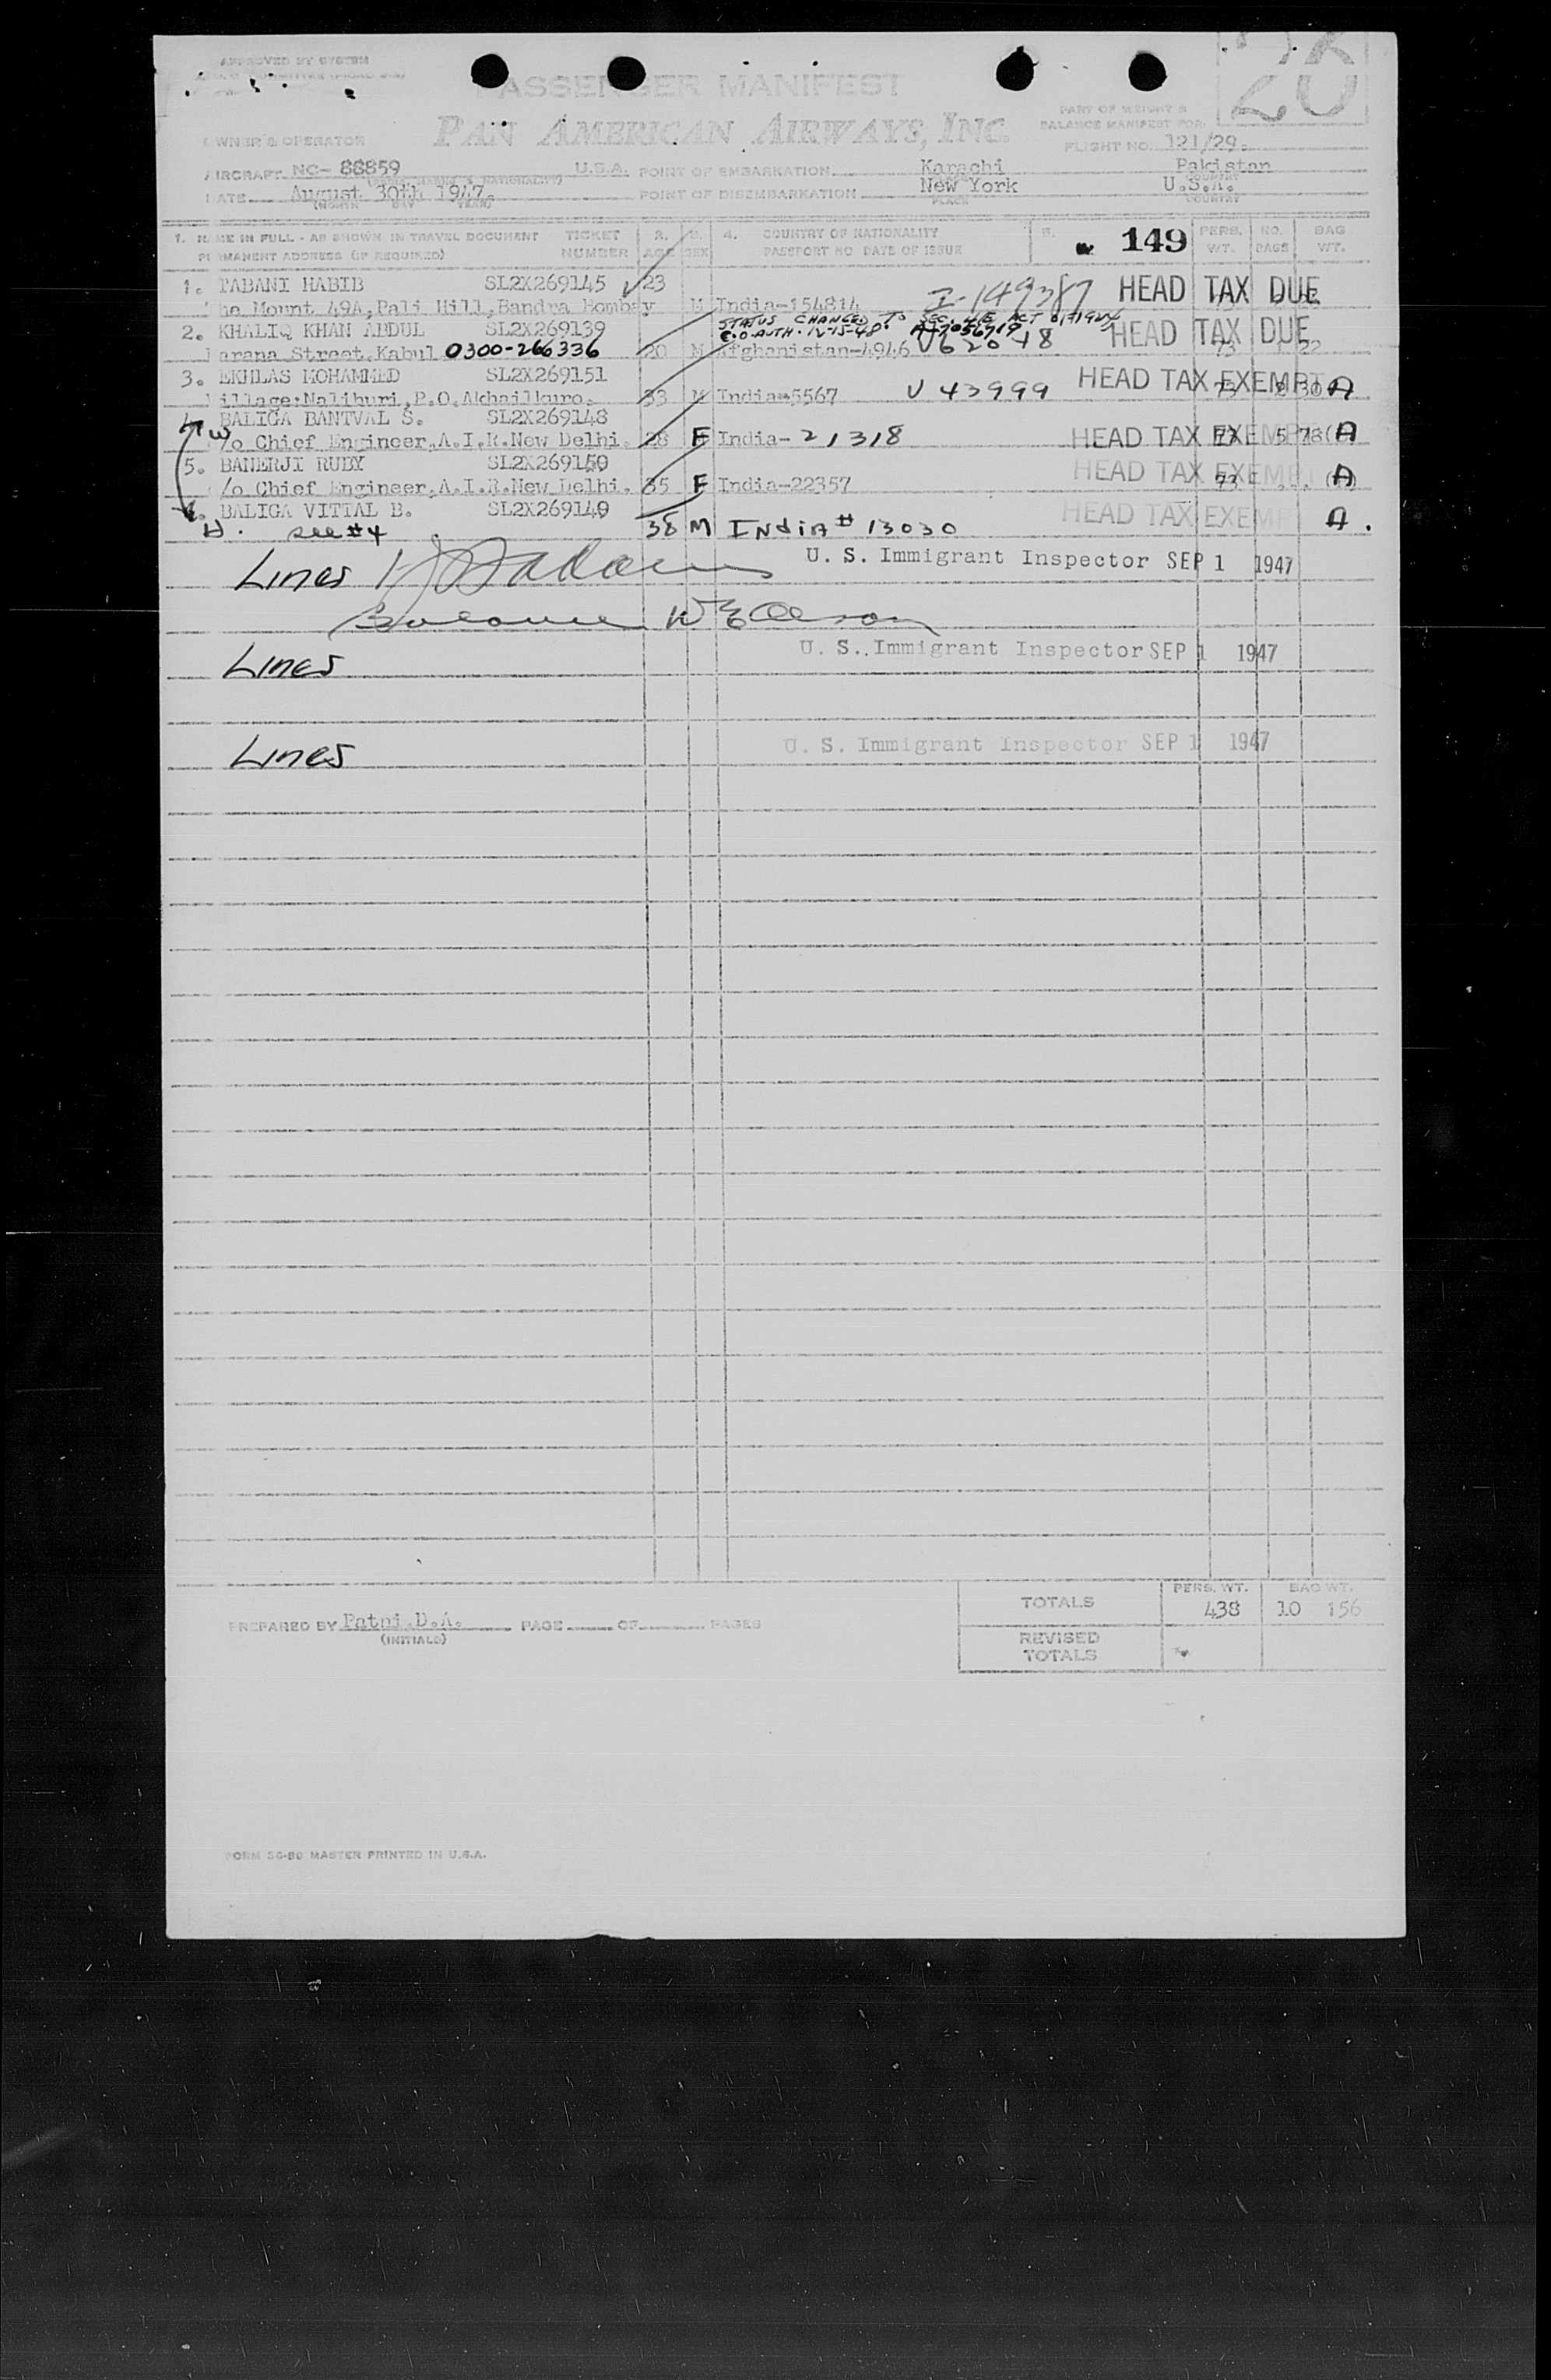 APPROVED BY SYSTEM
PASSENGER MANIFEST
PAN AMERICAN AIRWAYS, INC.
20
PART OF WEIGHT &
BALANCE MANIFEST FOR:
FLIGHT NO. 121/29.
OWNER & OPERATOR
AIRCRAFT NC- 88859 U.S.A. POINT OF EMBARKATION Karachi Pakistan
DATE August 30th 1947 POINT OF DISEMBARKATION New York U.S.A.
(MONTH DAY YEAR) PLACE COUNTRY
1. NAME IN FULL - AS SHOWN IN TRAVEL DOCUMENT TICKET 2. 3. 4. COUNTRY OF NATIONALITY 5. 149 PERS. NO. BAG
PERMANENT ADDRESS (IF REQUIRED) NUMBER AGE SEX PASSPORT NO DATE OF ISSUE WT. BAGS WT.
1. TABANI HABIB SL2X269145 23 I-149387 HEAD TAX DUE
The Mount 49A, Pali Hill, Bandra Bombay M India-154814
STATUS CHANGED TO SEC. 4E ACT OF 1924
2. KHALIQ KHAN ABDUL SL2X269139 C.O. AUTH. 12-15-48. HEAD TAX DUE
Karana Street, Kabul 0300-266336 20 M Afghanistan-4946 V62048
3. EKHLAS MOHAMMED SL2X269151 HEAD TAX EXEMPT
Village: Nalihuri, P.O. 33 M India-5567 V 43999 73 A
4. BALIGA BANTVAL S. SL2X269148
W c/o Chief Engineer, A.I.R. New Delhi. 28 F India-21318 HEAD TAX EXEMPT 5 78 A
5. BANERJI RUBY SL2X269150 HEAD TAX EXEMPT
c/o Chief Engineer, A.I.R. New Delhi. 35 F India-22357 73 A
6. BALIGA VITTAL B. SL2X269149 HEAD TAX EXEMP A.
H. see #4 38 M INdiA # 13030
Lines U. S. Immigrant Inspector SEP 1 1947
Balance
Lines U. S. Immigrant Inspector SEP 1 1947
Lines U. S. Immigrant Inspector SEP 1 1947
PERS. WT. BAG WT.
TOTALS 438 10 156
PREPARED BY Patni.D.A. PAGE OF PAGES
(INITIALS)
REVISED
TOTALS
FORM SG-80 MASTER PRINTED IN U.S.A.